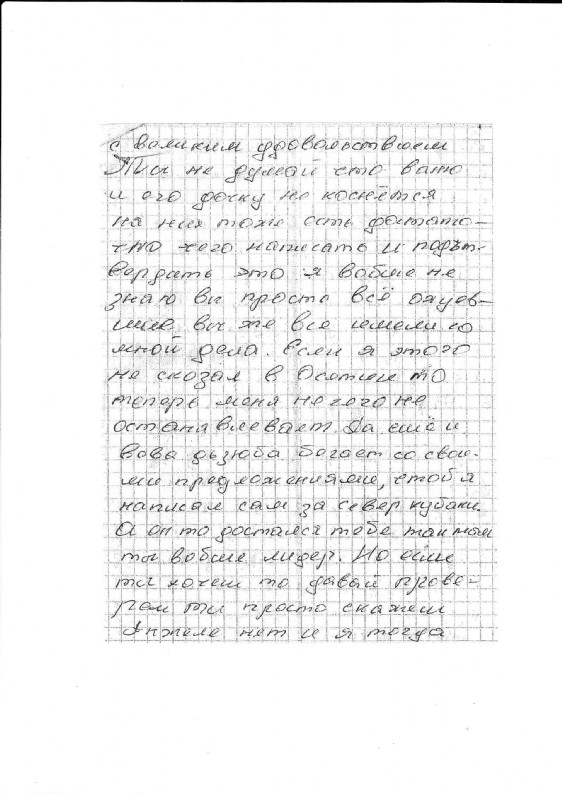 с воликим удовольствием
Ты не думай сто ватю
и его дочку не коснётся
на них тоже есть достато-
чно чего написать и подът-
вердать это я вобше не
знаю вы просто всё охуев-
шие вы же все имели со
мной дела. Если я этого
не сказал в Осетии то
теперь меня нечего не
останавлевает. Да ещё и
вова дзюба богает со свои-
ми предложениями, стоб я
написал сам за север кубани.
А он то достался тебе там
ты вобше лидер. Но если
ты хочеш то давай прове-
рам ты просто скажеш
Анжеле нет и я тогда